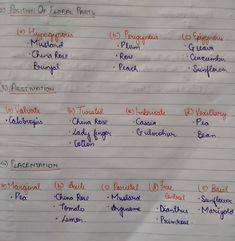 2) POSITION OF FLORAL PARTS
(a) Hypogynous (b) Perigynous (c) Epigynous
• Mustard • Plum • Guava
• China Rose • Rose • Cucumber
• Brinjal • Peach • Sunflower
AESTIVATION
(a) Valvate (b) Twisted (c) Imbricate (d) Vexillary
• Calotropis • China Rose • Cassia • Pea
• Lady finger • Gulmohur • Bean
• Cotton
PLACENTATION
(a) Marginal (b) Axile (c) Parietal (d) Free Central (e) Basal
• Pea • China Rose • Mustard • Dianthus • Sunflower
• Tomato • Argemone • Primrose • Marigold
• Lemon